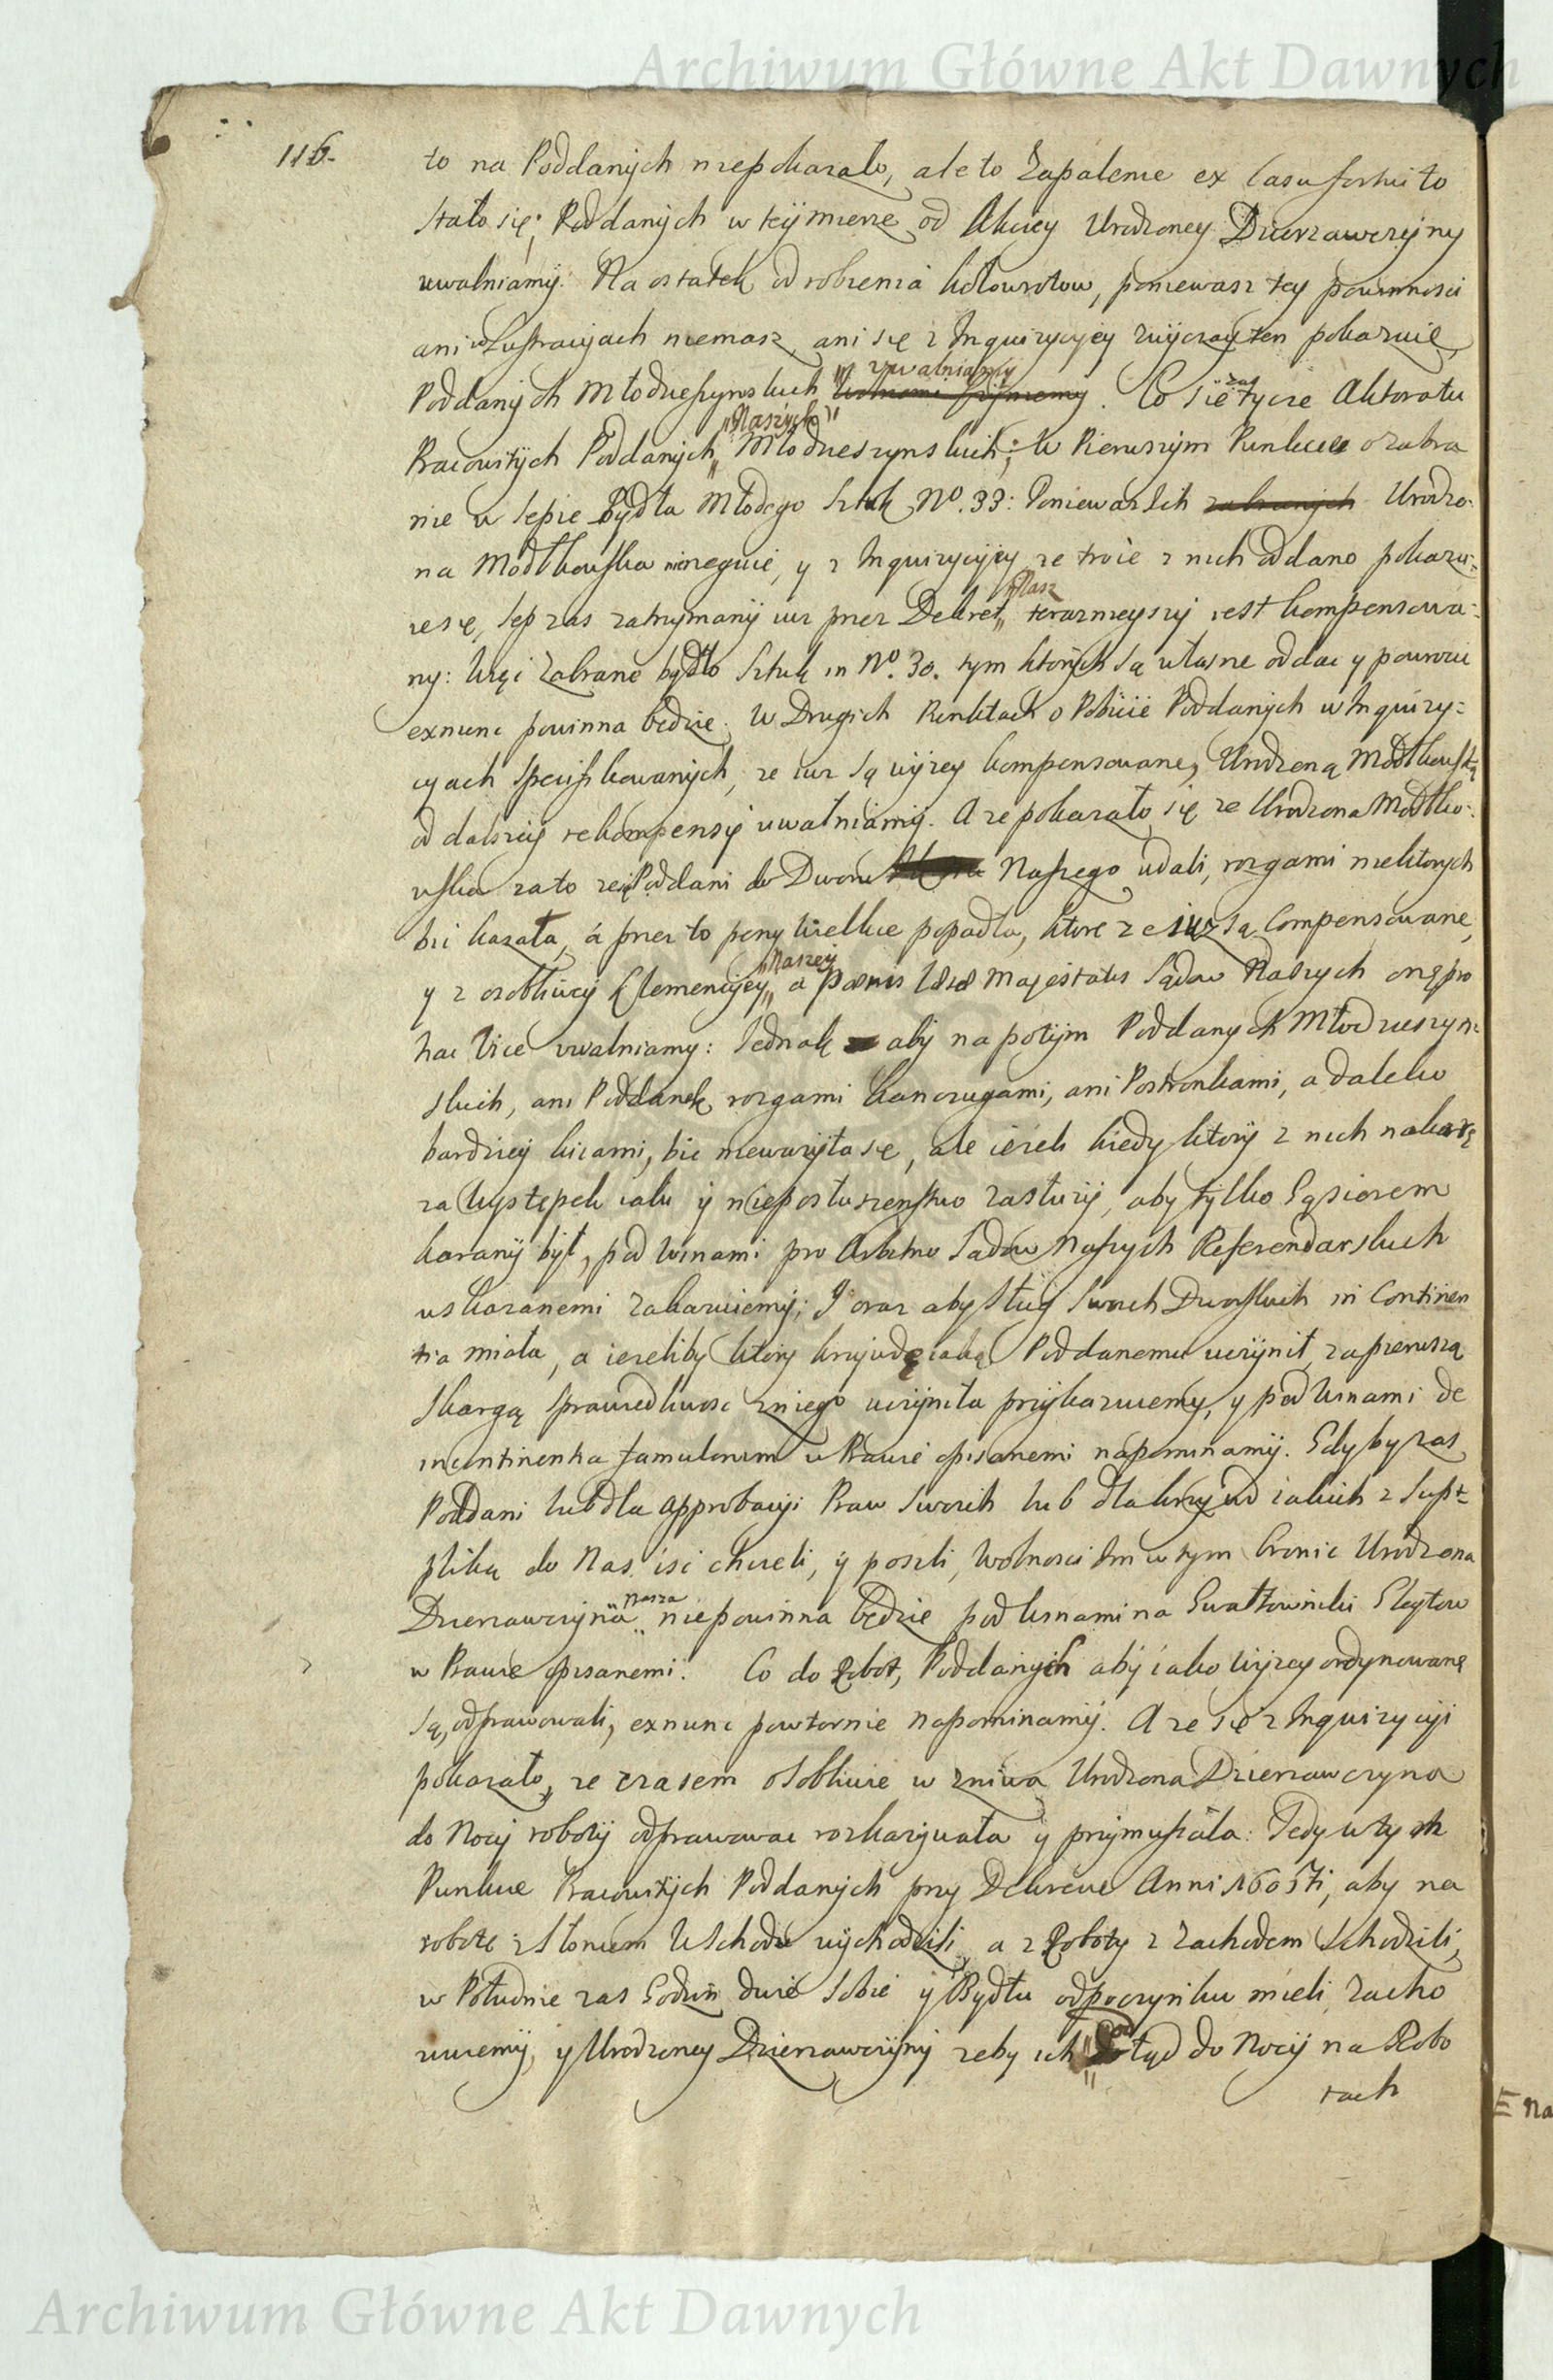 Archiwum Główne Akt Dawnych
116.
to na Poddanych niepokazało, ale to Zapalenie ex Casu fortuito
stało się; Poddanych w teÿ mierze od Akciey Urodzoney Dzierzawczyny
uwalniamÿ. Na ostatek od robienia kołowrotow, poniewasz tey powinnosci
ani w Lustracyach niemasz, ani się z Inquizycyey zwyczay ten pokazuie,
Poddanych Młodzieszynskich "uwalniamÿ
wolnemi czyniemy. Co się zas tycze Aktoratu
Pracowitych Poddanych "Naszych" Młodzieszynskich; w Pierwszym Punkcie o zabra
nie w Sepie Bydła Młodego Sztuk No. 33: Poniewasz ich zabranych Urodzo-
na Modłkowska nieneguie, y z Inquizycyey ze troie z nich oddano pokazu-
ie się, Sep zas zatrzymany iuz przez Dekret "Nasz teraznieyszy iest kompensowa-
ny: Więc zabrane bydło Sztuk in No. 30. tym ktorych są własne oddac y powrocic
exnunc powinna będzie. W Drugich Punktach o Pobicie Poddanych w Inquizy=
cyach specifikowanych, ze iuz są wyzey kompensowane, Urodzoną Modłkowską
od dalszey rekompensÿ uwalniamÿ. A ze pokazało się ze Urodzona Modłko-
wska za to ze się Poddani do Dworu Naszego udali, rozgami niektorych
bic kazała, á przez to peny wielkie popadła, ktore ze iuz są Compensowane,
y z osobliwey Clemencyey "Naszey a pænis læsæ Majestatis Sądow Naszych onę pro
hac Vice uwalniamy: Jednak aby na potÿm Poddanych Młodzieszyn-
skich, ani Poddanek rozgami kanczugami, ani Postronkami, a daleko
bardziey kiiami, bic niewazyła się, ale iezeli kiedy ktory z nich na karę
za Występek iaki y nieposłuszenstwo zasłuzy, aby tylko Gąsiorem
karany był, pod winami pro Arbitrio Sadow Naszych Referendarskich
wskazanemi zakazuiemy; I oraz aby Sług Swoich Dworskich in Continen
tia miała, a iezeliby ktory krzywdę iaką Poddanemu uczynił, za pierwszą
skargą sprawiedliwosc z niego uczyniła przykazuiemy, y pod winami de
incontinentia famulorum w Prawie opisanemi napominamÿ. Gdyby zas
Poddani lub dla approbacyi Praw Swoich lub dla krzywd iakich z Sup=
pliką do Nas isc chcieli, y poszli, wolnosci im w tym bronic Urodzona
Dzierzawczyna "Nasza niepowinna będzie pod winami na Gwałtowniki Gleytow
w Prawie opisanemi. Co do Robot, Poddanych aby iako wyzey ordynowane
są, odprawowali, exnunc powtornie napominamÿ. A ze się z Inquizycyi
pokazało, ze czasem osobliwie w zniwa Urodzona Dzierzawczyna
do Nocy roboty odprawowac rozkazywała y przymuszała: Tedy w tych
Punkcie Pracowitych Poddanych przy Dekrecie Anni 1605ti, aby na
robotę z Słoncem Wschodu wychodzili, a z Roboty z Zachodem schodzili,
w Południe zas Godzin dwie Sobie y Bydłu odpoczynku mieli, zacho
wuiemÿ, y Urodzoney Dzierzawczyny zeby ich "odtąd do Nocy na Robo
tach
E na
Archiwum Główne Akt Dawnych